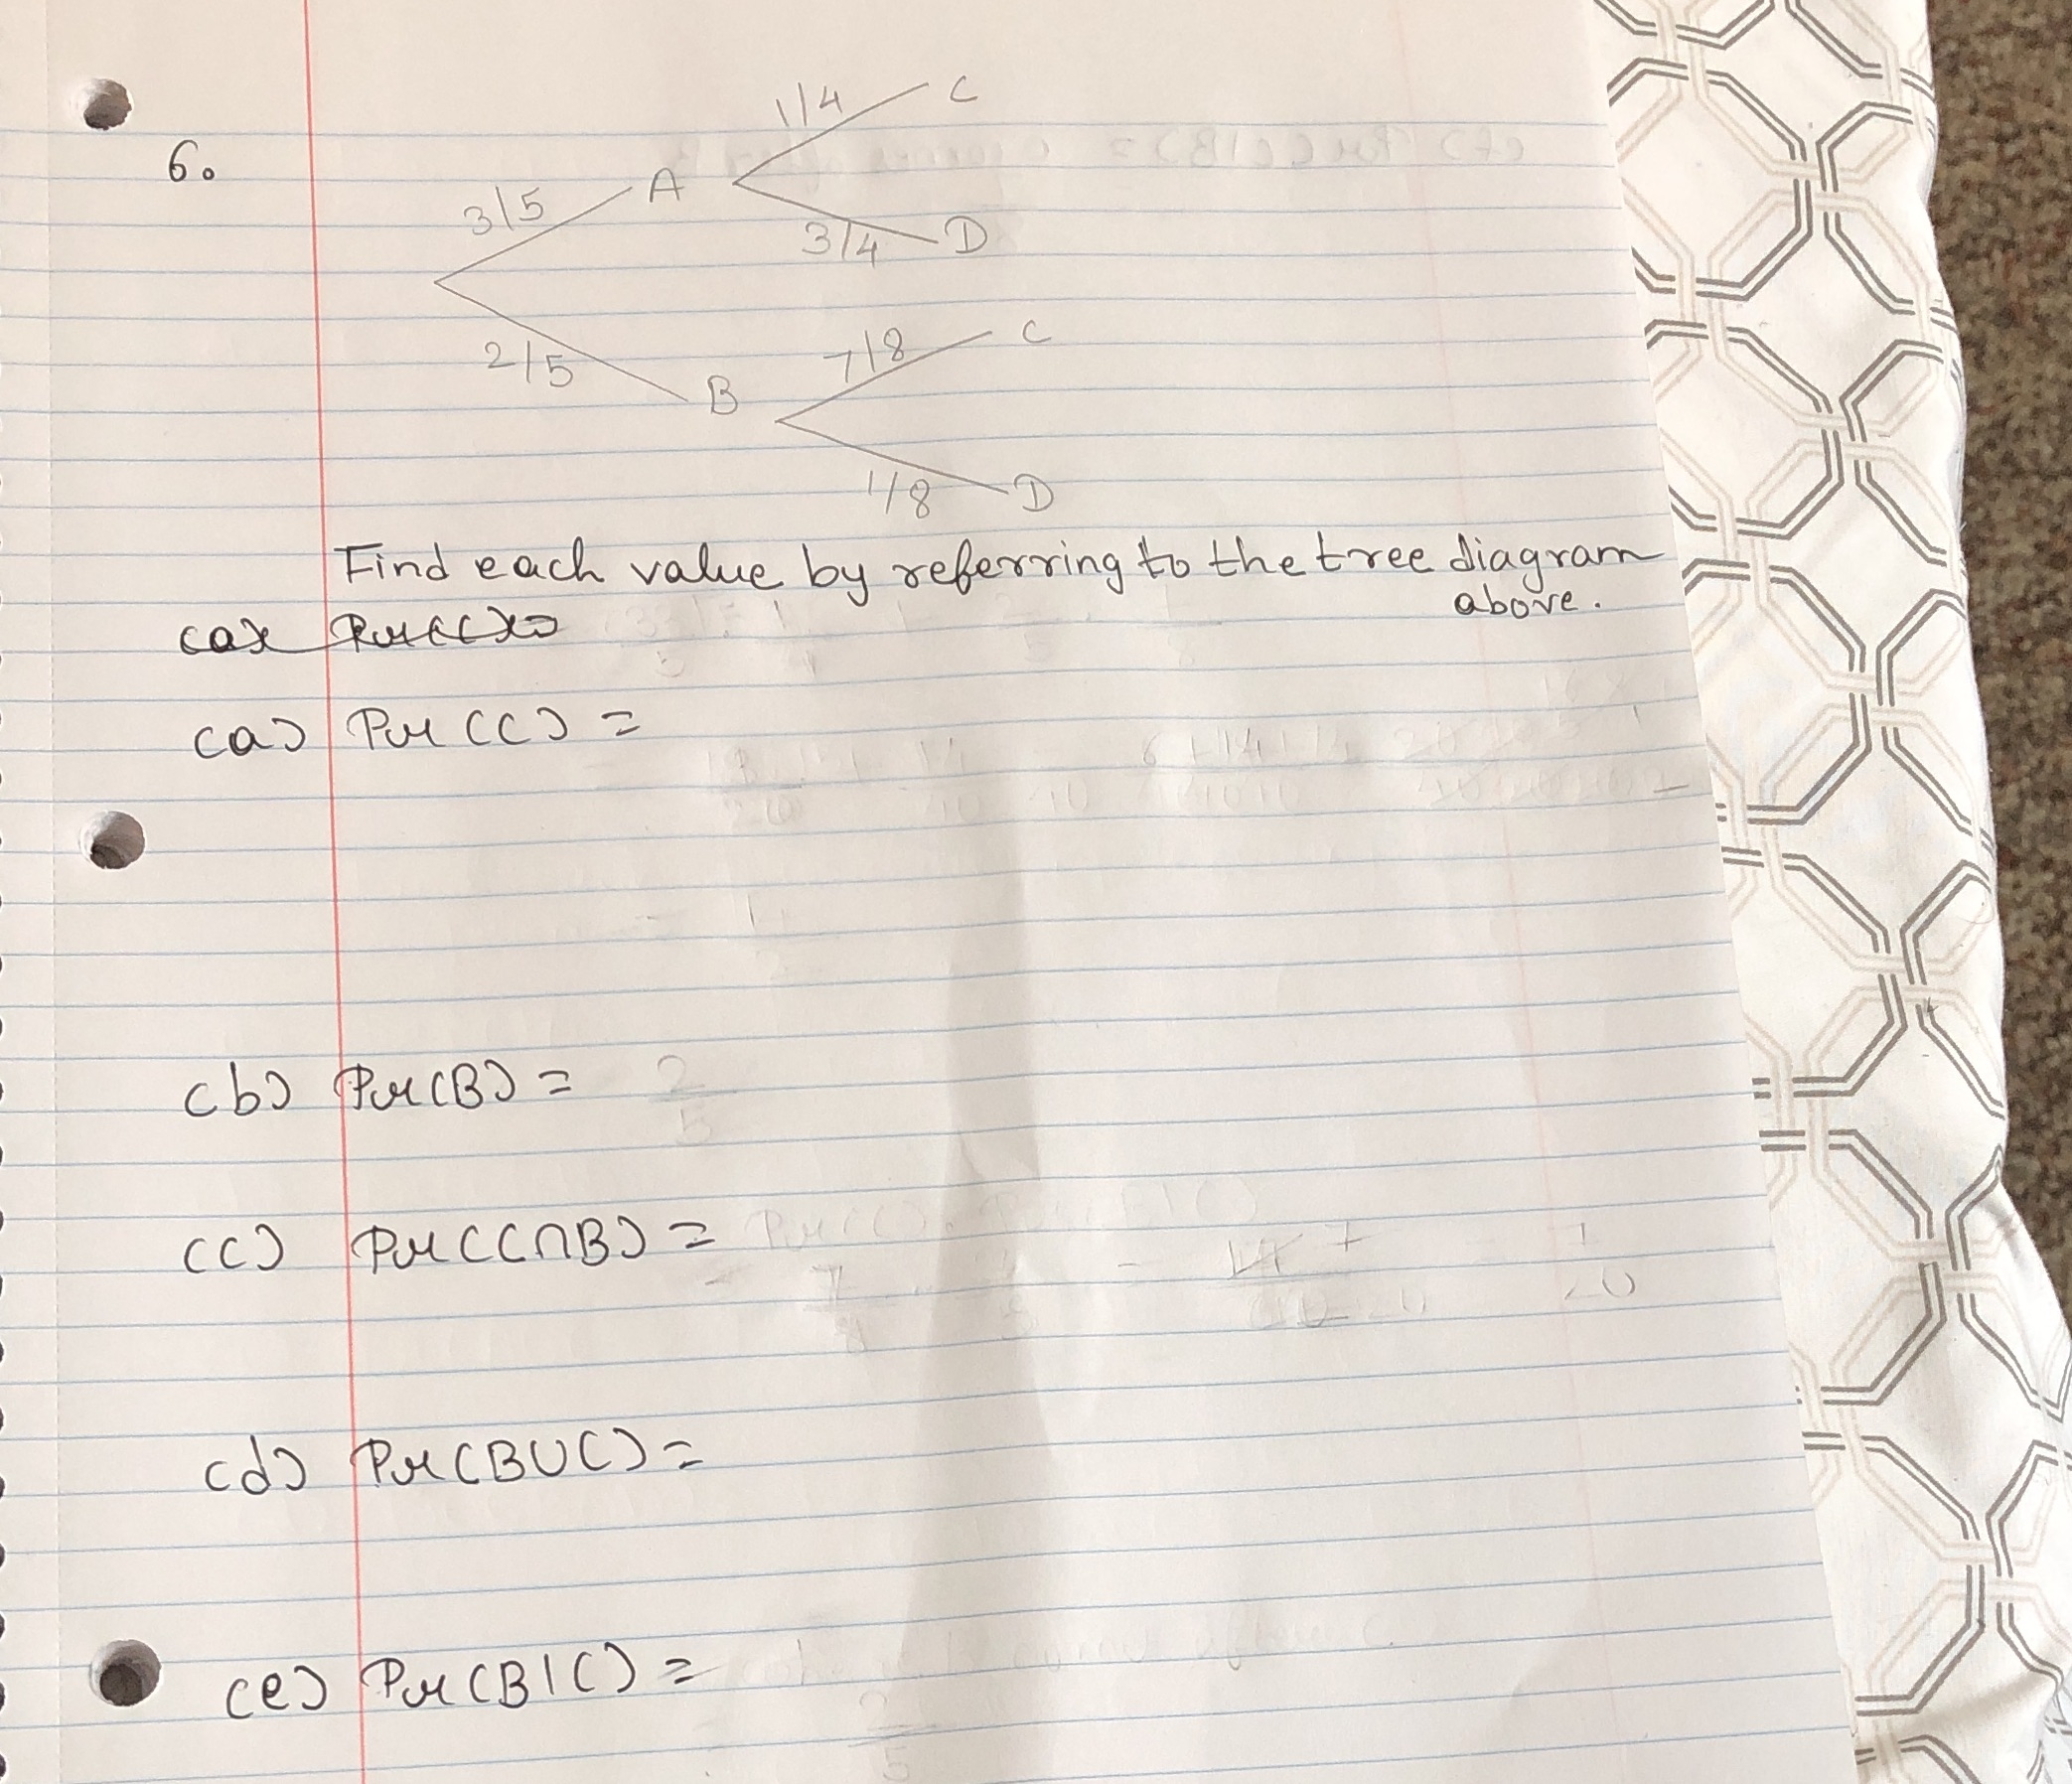 6.
1/4 C
3/5 A
3/4 D
7/8 C
2/5 B
1/8 D
Find each value by referring to the tree diagram
above.
(a) Pr(C) =
(a) Pr(C) =
(b) Pr(B) = 2/5
(c) Pr(C∩B) =
(d) Pr(B∪C) =
(e) Pr(B|C) =